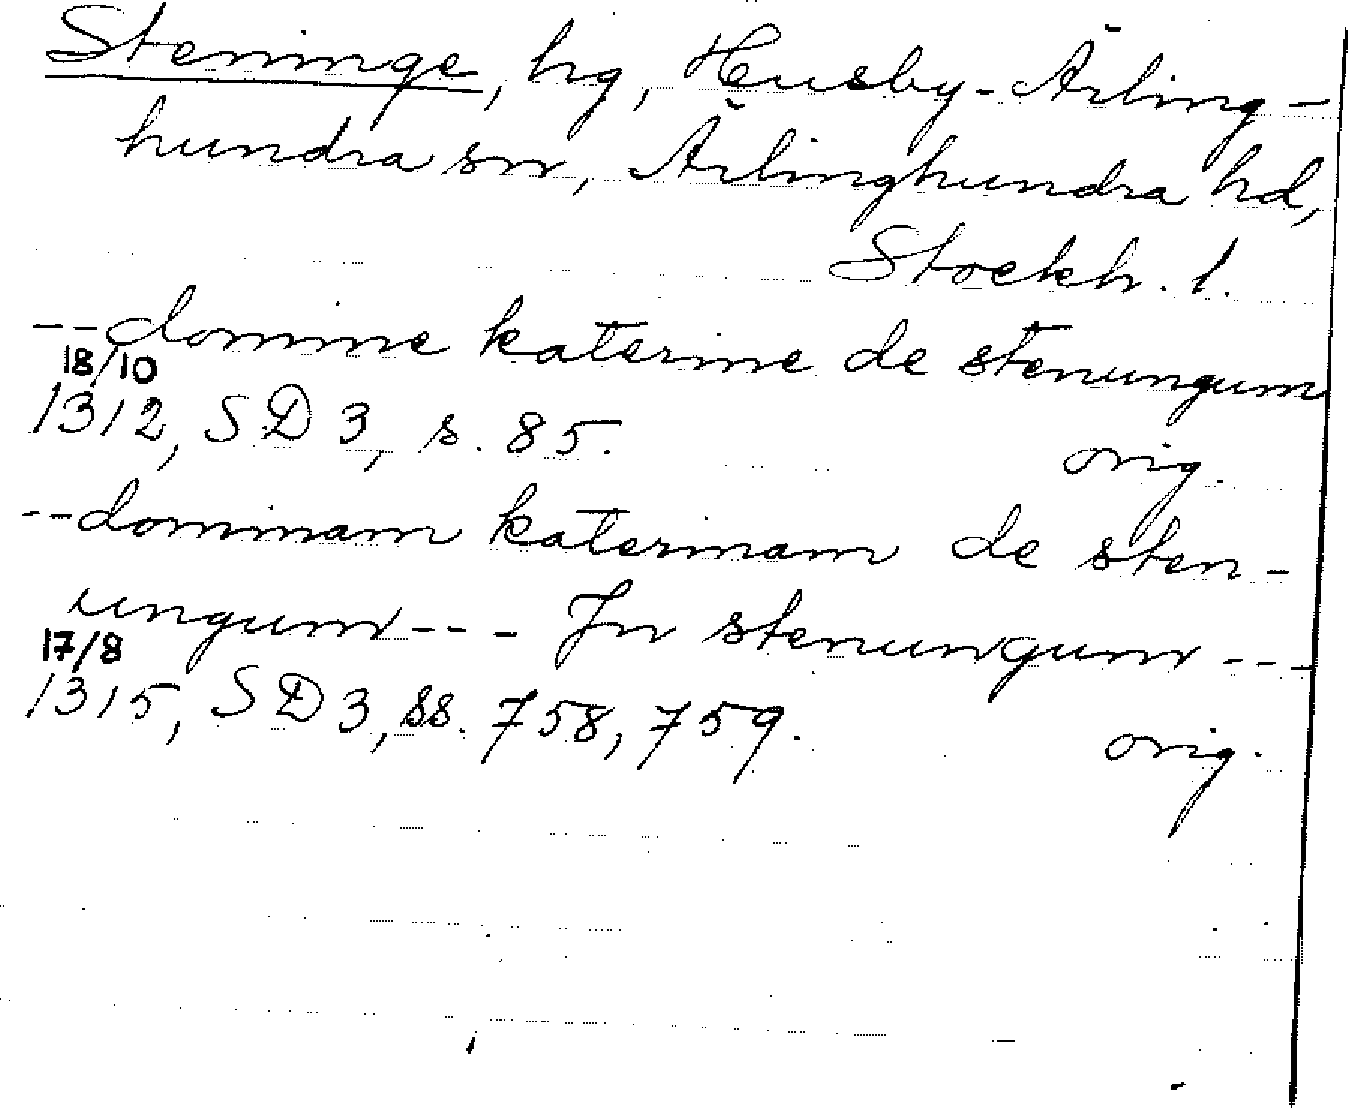 Steninge, hg, Husby-Ärling-
hundra sn, Ärlinghundra hd,
Stockh. l.
--domine katerine de stenungum
18/10
1312, SD 3, s. 85. orig.
--dominam katerinam de sten-
ungum--- In stenungum---
17/8
1315, SD 3, ss. 758, 759. orig.